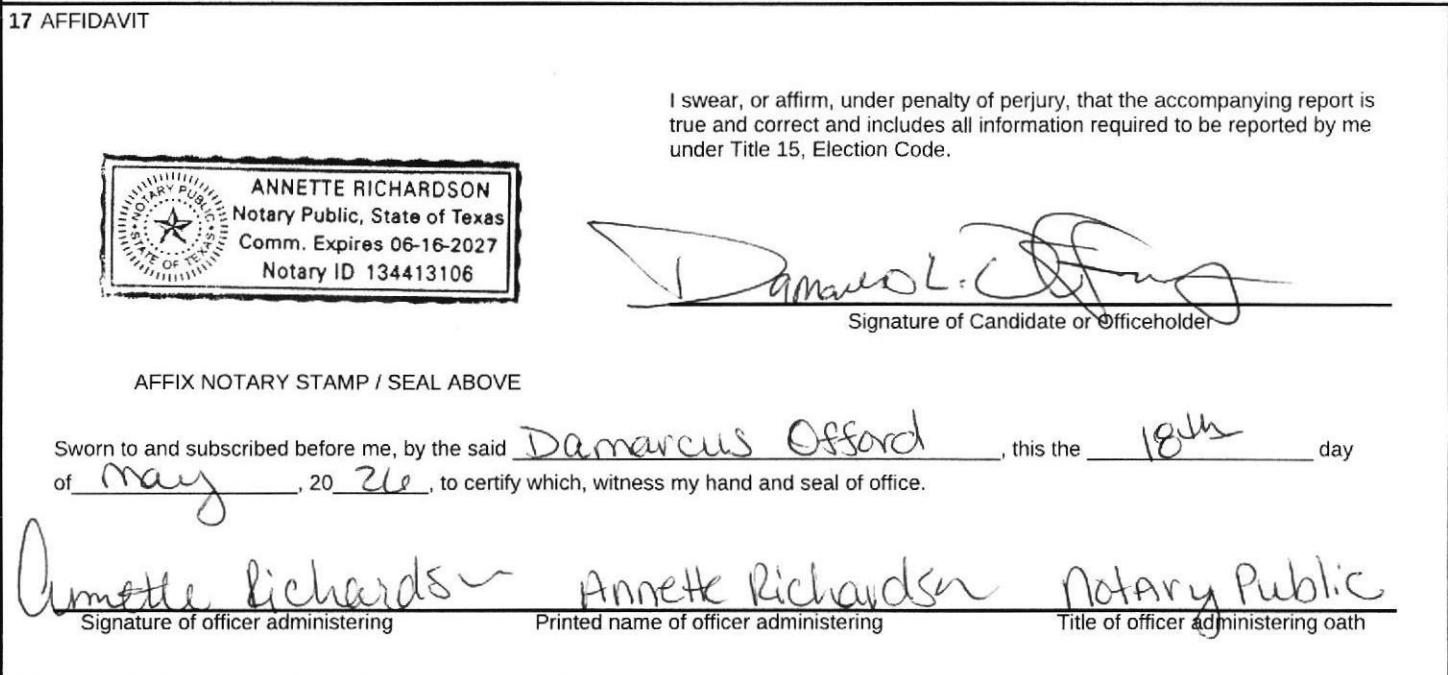 17 AFFIDAVIT
I swear, or affirm, under penalty of perjury, that the accompanying report is
true and correct and includes all information required to be reported by me
under Title 15, Election Code.
NOTARY PUBLIC
STATE OF TEXAS
ANNETTE RICHARDSON
Notary Public, State of Texas
Comm. Expires 06-16-2027
Notary ID 134413106
Damarcus L. Offord
Signature of Candidate or Officeholder
AFFIX NOTARY STAMP / SEAL ABOVE
Sworn to and subscribed before me, by the said Damarcus Offord, this the 18th day
of May, 20 26, to certify which, witness my hand and seal of office.
Annette Richardson Annette Richardson Notary Public
Signature of officer administering Printed name of officer administering Title of officer administering oath